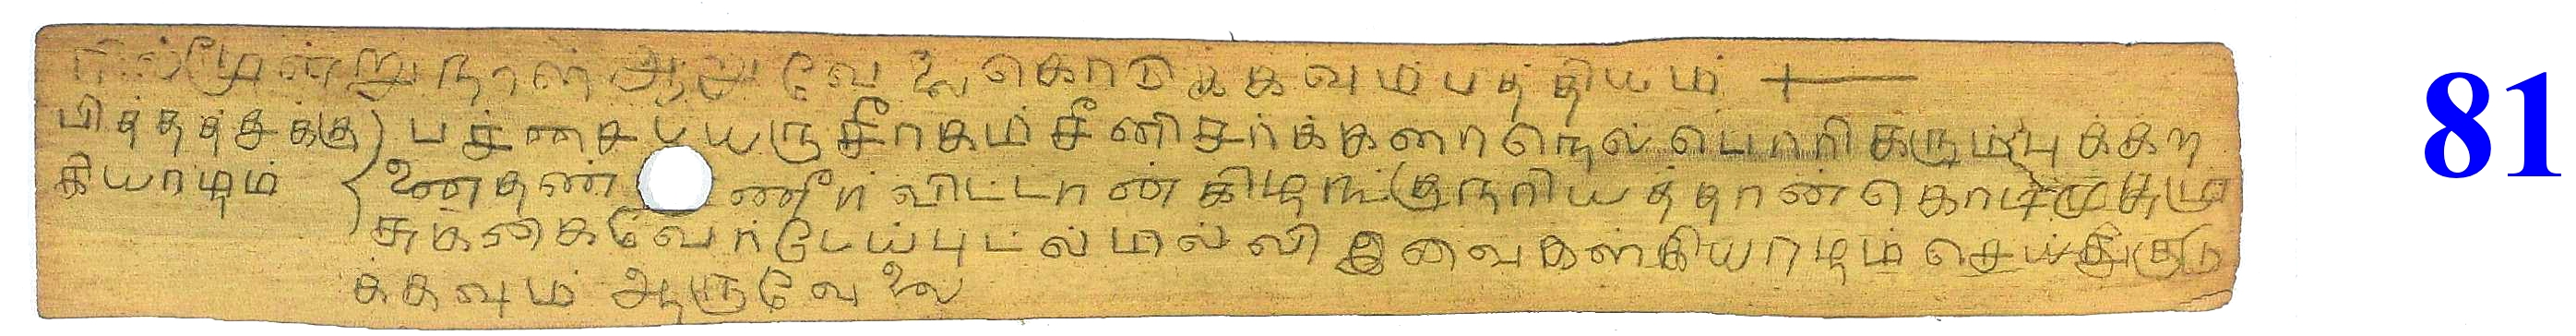 ரில் மூன்று நாள் ஆறு வேலை கொடுக்கவும் பத்தியம்
பித்தத்துக்கு பச்சை பயறு சீரகம் சீனி சர்க்கரை நெல் பொரி கரும்பு க்கற
கியாழம் ணை தண்ணீர் விட்டான் கிழங்கு நாரியத்தான் கொடி முசுமு
சுக்கை வேர் பேய்புடல் மல்லி இவைகள் கியாழம் செய்து குடு
க்கவும் ஆறு வேலை
81